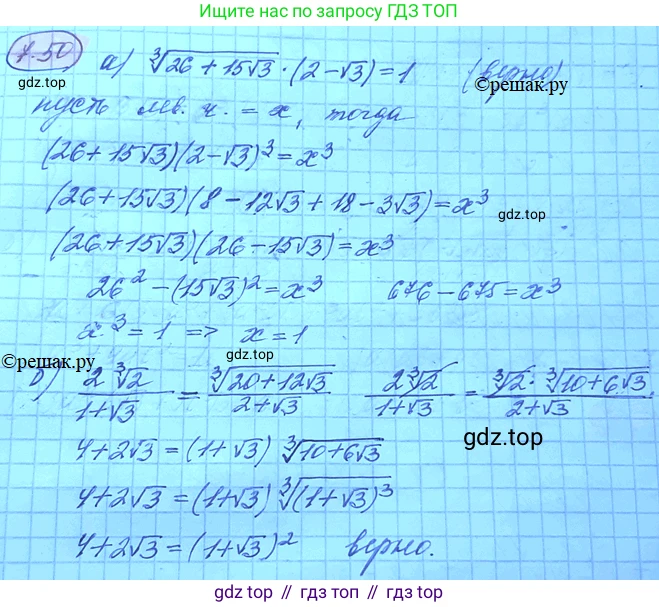 Ищите нас по запросу ГДЗ ТОП
7.50 а) ∛(26 + 15√3) · (2 − √3) = 1 (верно)
gdz.top ©решак.ру
пусть лев. ч. = x, тогда
(26 + 15√3)(2 − √3)³ = x³
(26 + 15√3)(8 − 12√3 + 18 − 3√3) = x³
gdz.top
(26 + 15√3)(26 − 15√3) = x³
26² − (15√3)² = x³ 676 − 675 = x³
x³ = 1 => x = 1
©решак.ру gdz.top ©решак.ру
б) 2∛2/(1+√3) = ∛(20+12√3)/(2+√3) 2∛2/(1+√3) = ∛2 · ∛(10+6√3)/(2+√3)
4 + 2√3 = (1 + √3) ∛(10+6√3)
gdz.top
4 + 2√3 = (1+√3) ∛((1+√3)³)
4 + 2√3 = (1+√3)² верно.
gdz.top // гдз.топ // gdz.top // гдз.топ